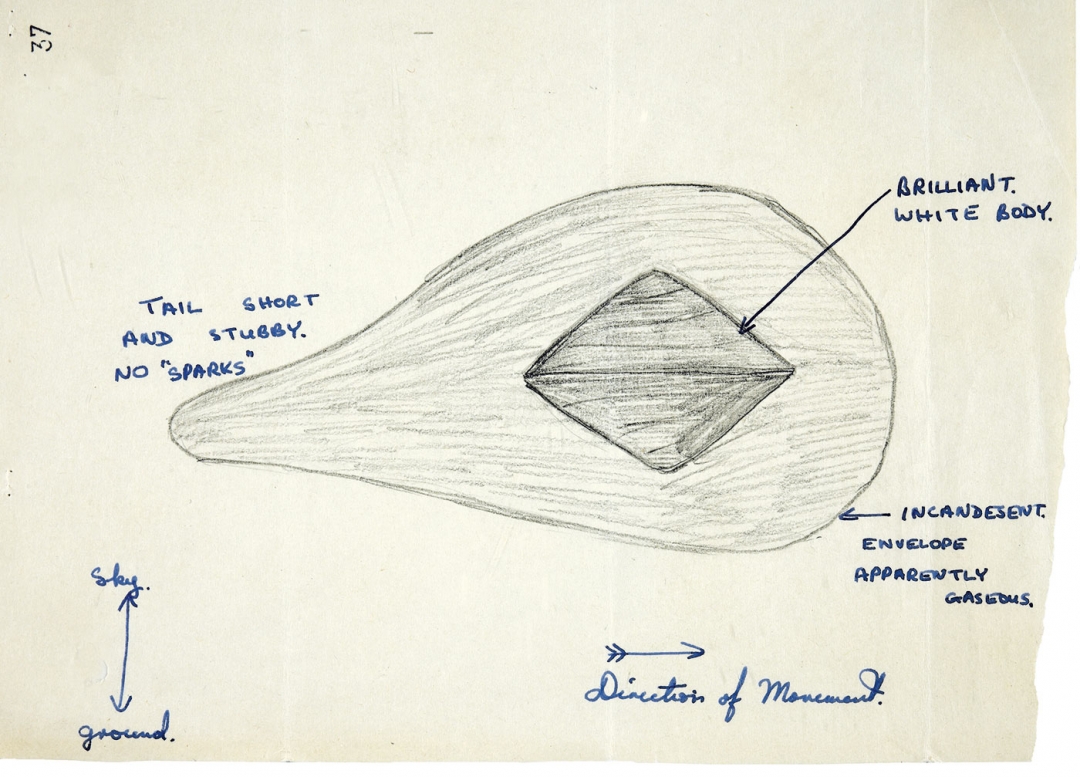 37
BRILLIANT.
WHITE BODY.
TAIL SHORT
AND STUBBY.
NO "SPARKS"
INCANDESENT.
ENVELOPE
APPARENTLY
GASEOUS.
Sky.
ground.
Direction of Movement.